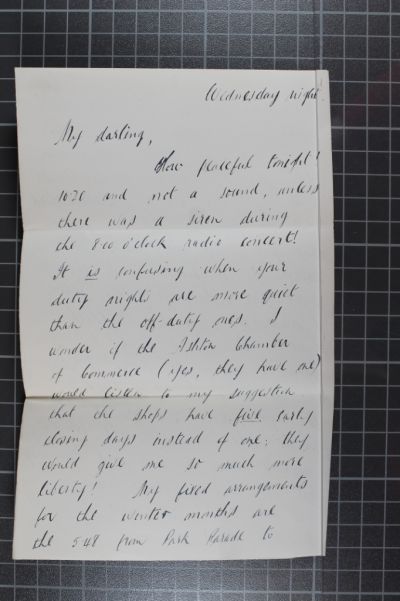 Wednesday night.
My darling,
How peaceful tonight!
10.30 and not a sound, unless
there was a siren during
the 8.00 o'clock radio concert!
It is confusing when your
duty nights are more quiet
than the off-duty ones. I
wonder if the Ashton Chamber
of Commerce (yes, they have one)
would listen to my suggestion
that the shops have five early
closing days instead of one; they
would give me so much more
liberty! My fixed arrangements
for the winter months are
the 5.48 from Park Parade to